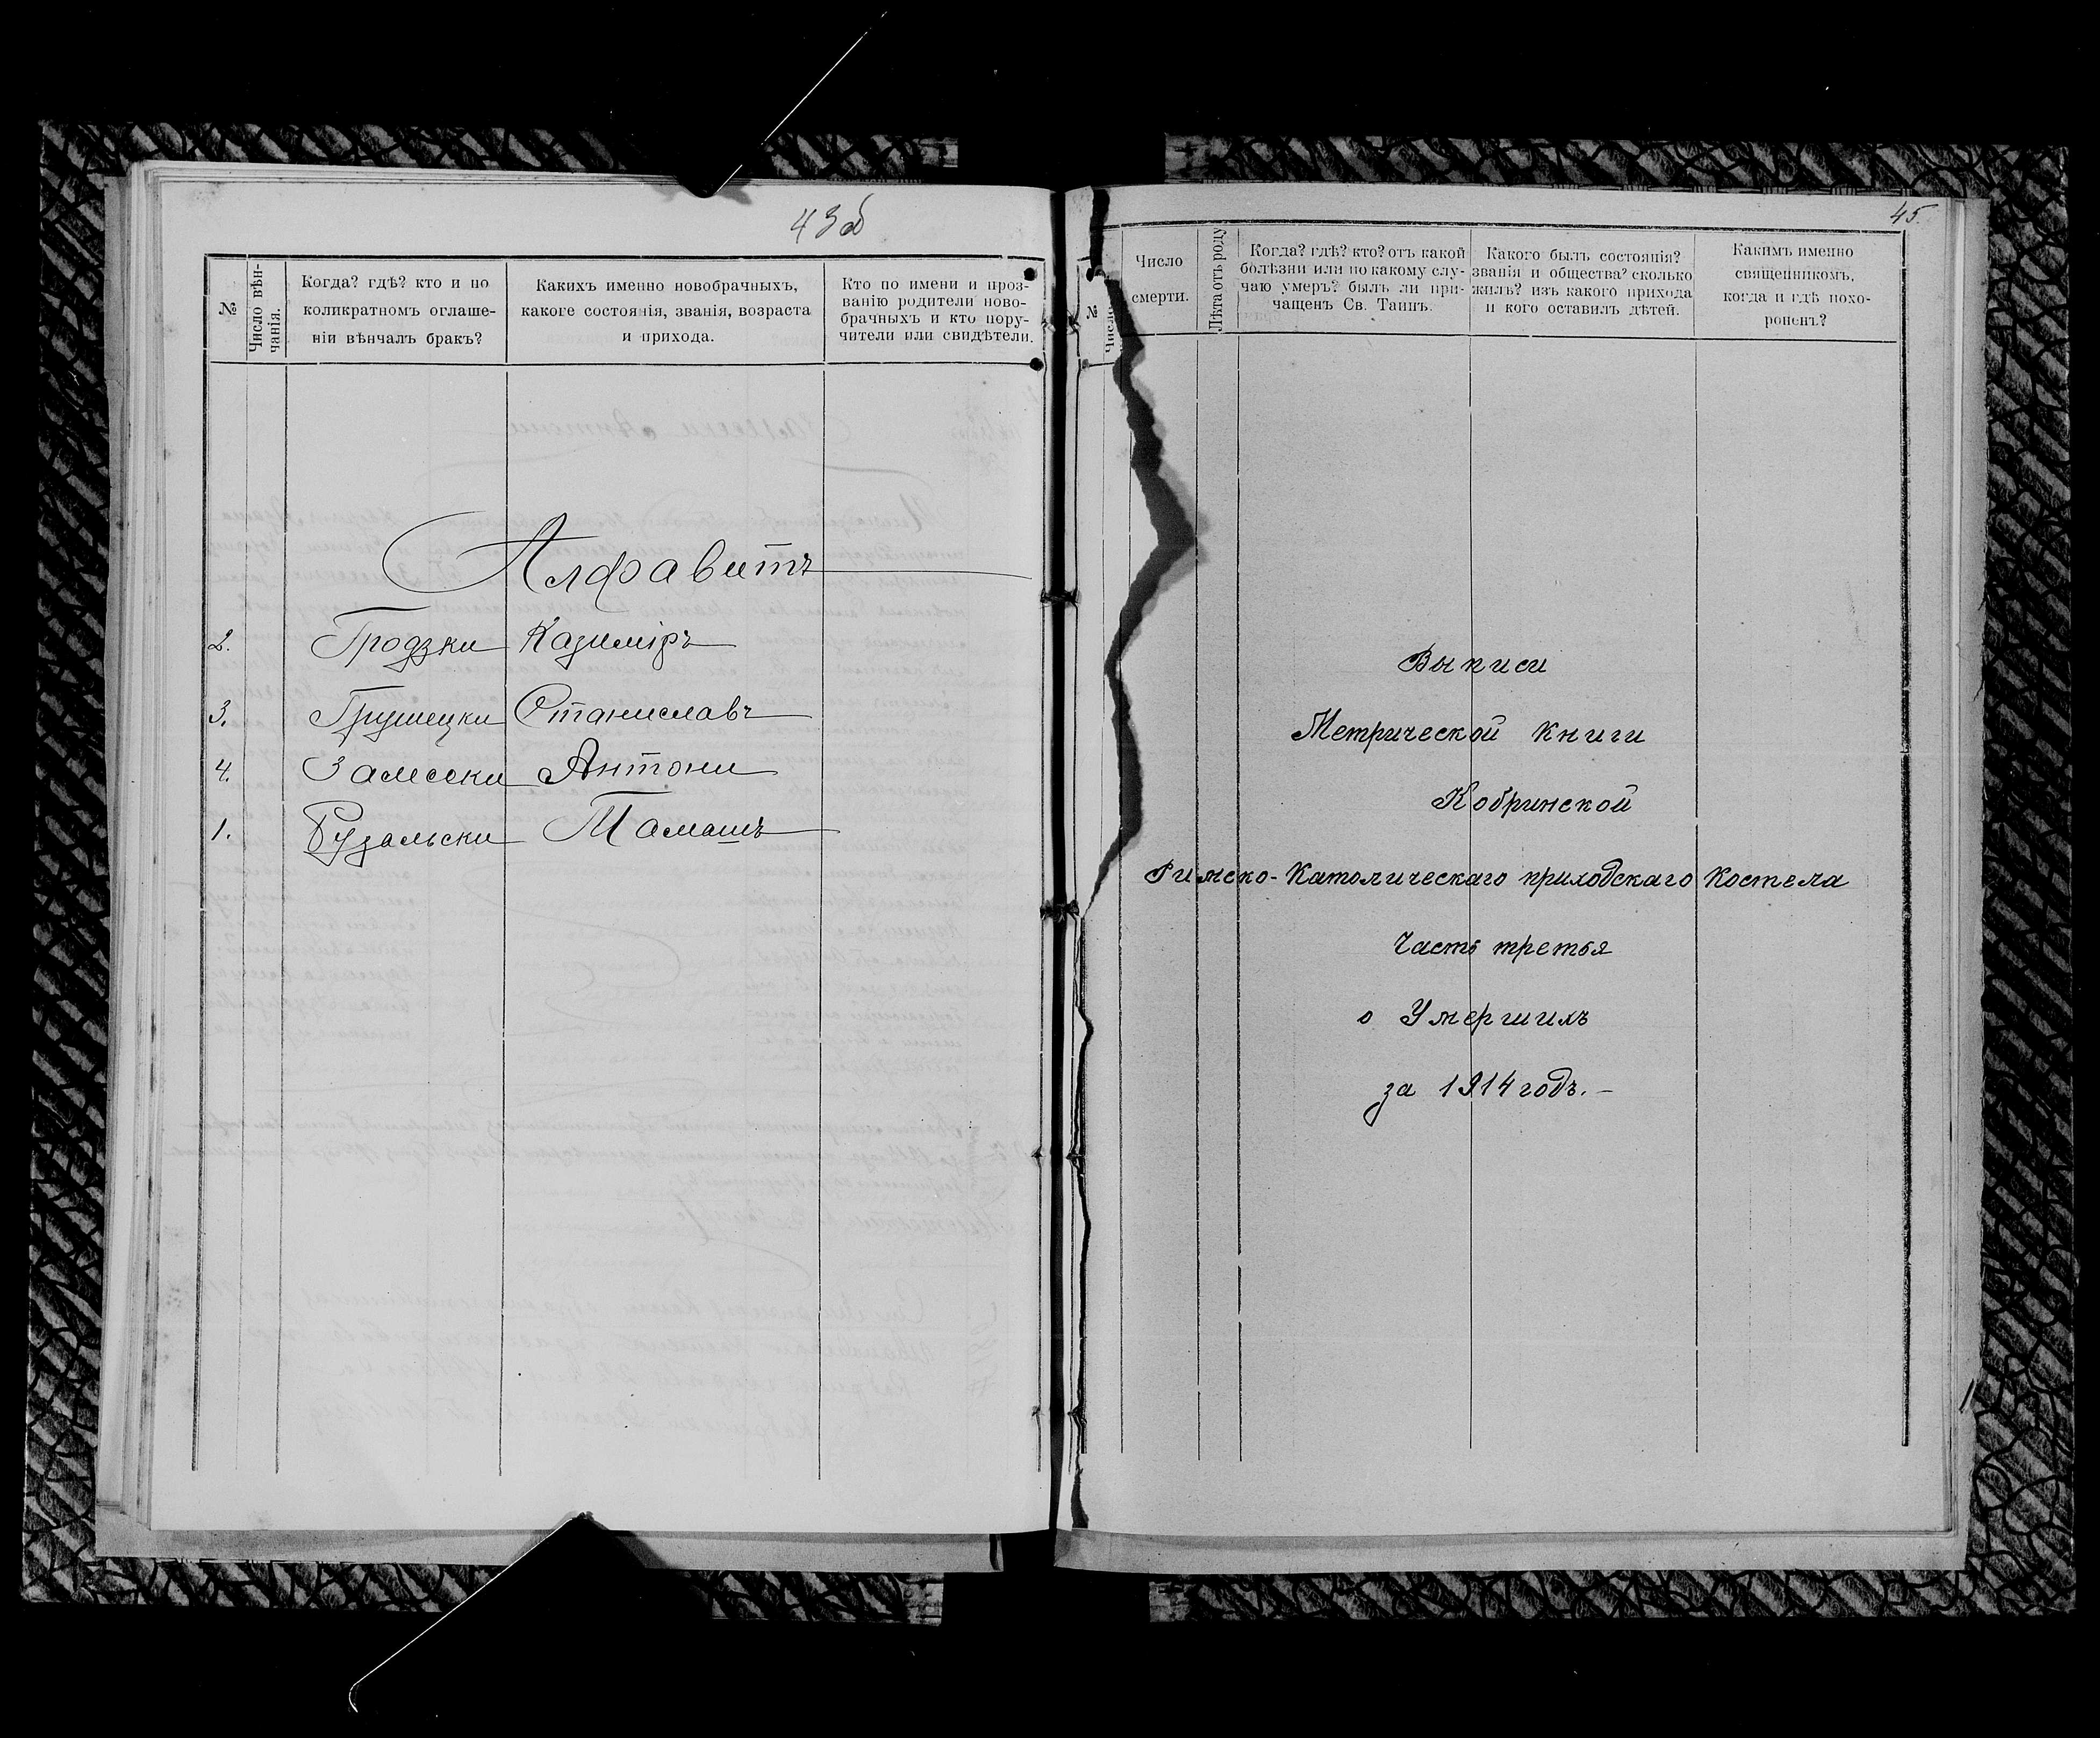 43об
№
Число вѣн-
чанія.
Когда? гдѣ? кто и по
коликратномъ оглаше-
ніи вѣнчалъ бракъ?
Какихъ именно новобрачныхъ,
какого состоянія, званія, возраста
и прихода.
Кто по имени и проз-
ванію родители ново-
брачныхъ и кто пору-
чители или свидѣтели.
Алфавитъ
2. Гродзки Казиміръ
3. Грушецки Станиславъ
4. Залесски Антони
1. Рузальски Тамашъ
45.
№
Число
Число
смерти.
Лѣта отъ роду
Когда? гдѣ? кто? отъ какой
болѣзни или по какому слу-
чаю умеръ? былъ ли при-
чащенъ Св. Таинъ.
Какого былъ состоянія?
званія и общества? сколько
жилъ? изъ какого прихода
и кого оставилъ дѣтей.
Какимъ именно
священникомъ,
когда и гдѣ похо-
роненъ?
Выписи
Метрической книги
Кобринской
Римско-Католическаго приходскаго Костела
Часть третья
о Умершихъ
за 1914 годъ.-